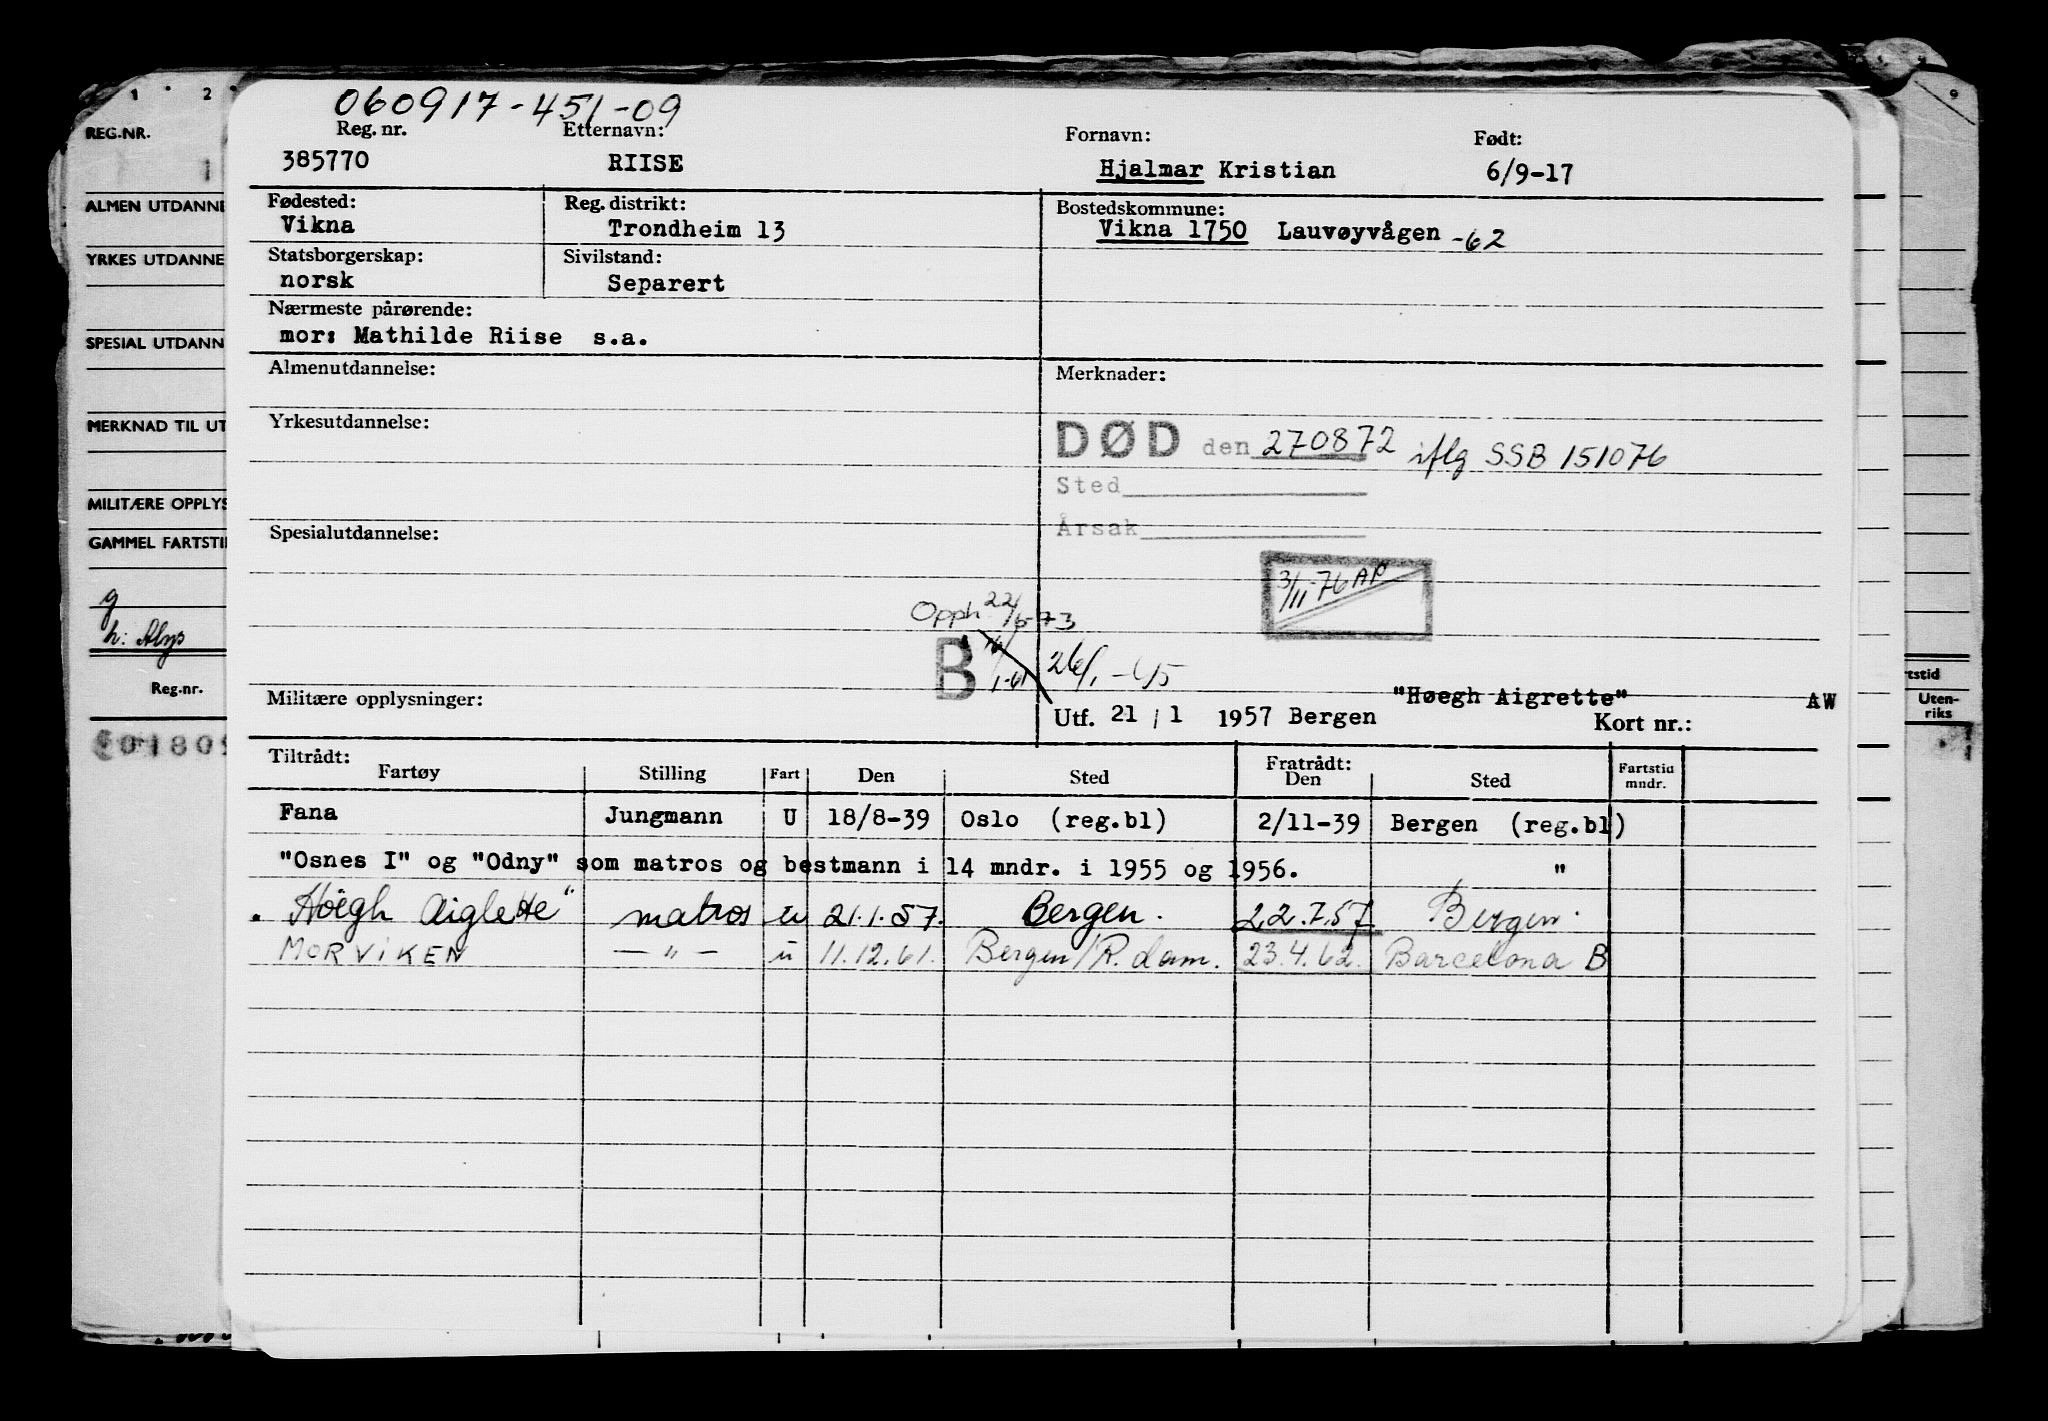 060917-451-09
Reg. nr. Etternavn: Fornavn: Født:
385770 RIISE Hjalmar Kristian 6/9-17
Fødested: Reg. distrikt: Bostedskommune:
Vikna Trondheim 13 Vikna 1750 Lauvøyvågen -62
Statsborgerskap: Sivilstand:
norsk Separert
Nærmeste pårørende:
mor: Mathilde Riise s.a.
Almenutdannelse: Merknader:
Yrkesutdannelse:
DØD den 270872 iflg SSB 151076
Sted
Årsak
Spesialutdannelse:
3/11-76 AP
Opph 22/6-73
B 1-61 26/1-65
Militære opplysninger:
"Høegh Aigrette" AW
Utf. 21/1 1957 Bergen Kort nr.:
Tiltrådt: Fratrådt:
Fartøy Stilling Fart Den Sted Den Sted Fartstid mndr.
Fana Jungmann U 18/8-39 Oslo (reg.bl) 2/11-39 Bergen (reg.bl)
"Osnes I" og "Odny" som matros og bestmann i 14 mndr. i 1955 og 1956. "
Høegh Aiglette" matros u 21.1.57. Bergen. 22.7.57 Bergen.
MORVIKEN — " — u 11.12.61. Bergen/R.dam. 23.4.62. Barcelona B
1 2
REG.NR.
ALMEN UTDANNE
YRKES UTDANNE
SPESIAL UTDANN
MERKNAD TIL UT
MILITÆRE OPPLYS
GAMMEL FARTSTI
g
Reg.nr.
01809
9
rtstid
Uten-
riks